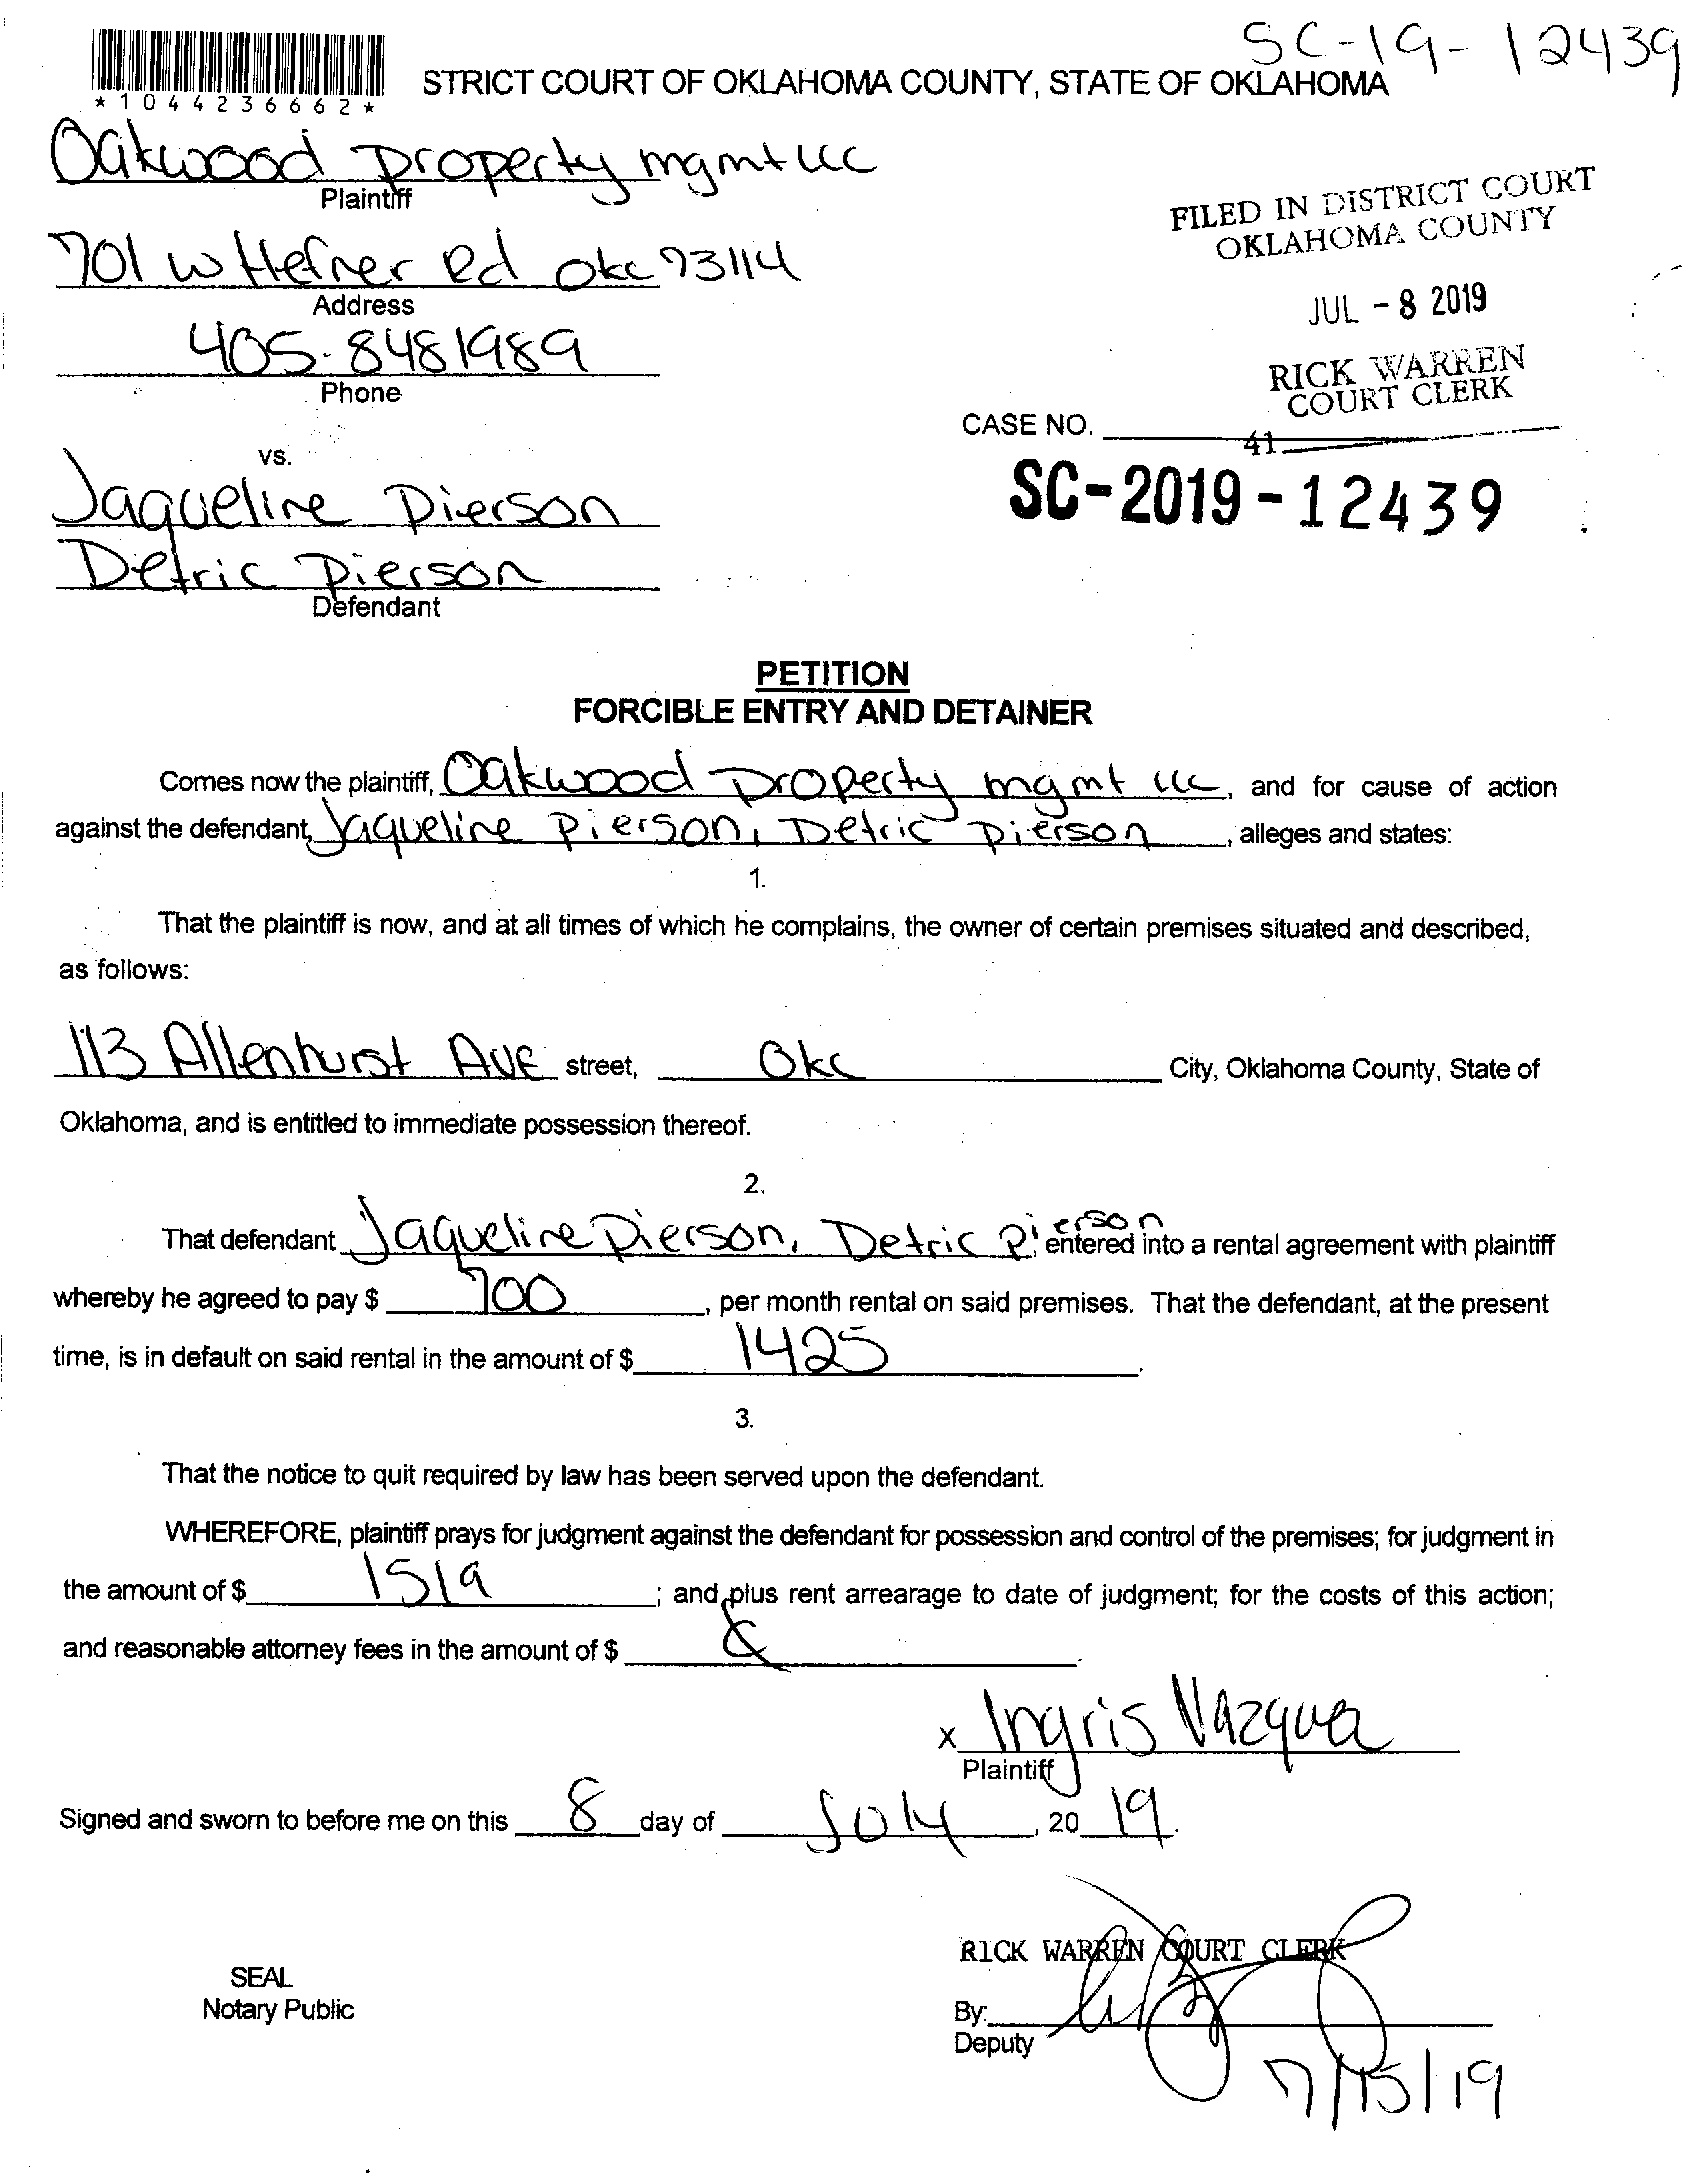 SC-19-12439
*1044236662*
STRICT COURT OF OKLAHOMA COUNTY, STATE OF OKLAHOMA
Oakwood Property mgmt llc
Plaintiff
FILED IN DISTRICT COURT
OKLAHOMA COUNTY
701 w Hefner Rd okc 73114
Address
JUL - 8 2019
405-8481989
Phone
RICK WARREN
COURT CLERK
CASE NO.
41
vs.
SC-2019-12439
Jaqueline Pierson
Detric Pierson
Defendant
PETITION
FORCIBLE ENTRY AND DETAINER
Comes now the plaintiff, Oakwood Property mgmt llc, and for cause of action
against the defendant, Jaqueline Pierson, Detric Pierson, alleges and states:
1.
That the plaintiff is now, and at all times of which he complains, the owner of certain premises situated and described,
as follows:
113 Allenhurst Ave street, Okc City, Oklahoma County, State of
Oklahoma, and is entitled to immediate possession thereof.
2.
That defendant Jaqueline Pierson, Detric Pierson entered into a rental agreement with plaintiff
whereby he agreed to pay $ 700, per month rental on said premises. That the defendant, at the present
time, is in default on said rental in the amount of $ 1425.
3.
That the notice to quit required by law has been served upon the defendant.
WHEREFORE, plaintiff prays for judgment against the defendant for possession and control of the premises; for judgment in
the amount of $ 1519; and plus rent arrearage to date of judgment; for the costs of this action;
and reasonable attorney fees in the amount of $
x Ingris Vazquez
Plaintiff
Signed and sworn to before me on this 8 day of July, 20 19.
RICK WARREN COURT CLERK
SEAL
Notary Public
By:
Deputy
7/15/19